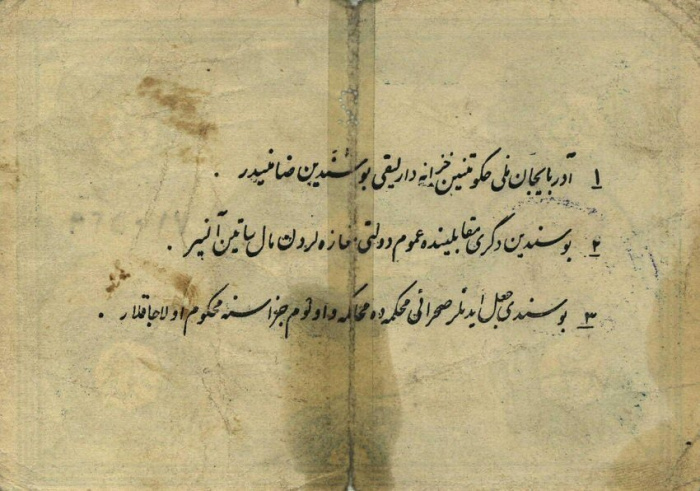 ۱ آذربایجان ملی حکومتینین خزانه دارلیقی بو سندین ضامنیدر .
۲ بو سندین دگری مقابلینده عموم دولتی مغازه لردن مال ساتین آلنیر .
۳ بو سندی جعل ایدنلر صحرائی محکمه ده محاکمه و اولوم جزاسنه محکوم اولاجاقلار .